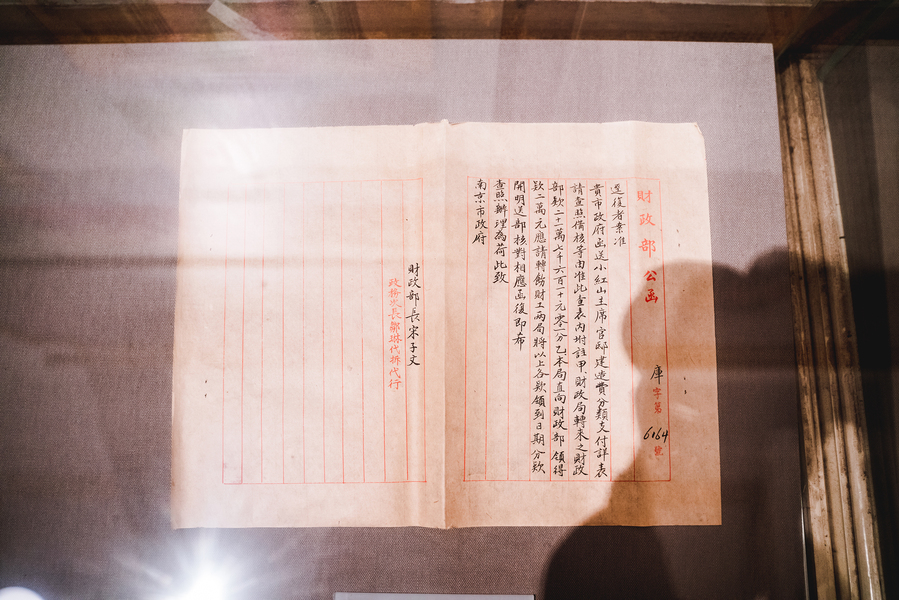 財政部公函
庫字第6164號
逕復者案准
貴市政府函送小紅山主席官邸建造費分類支付詳表
請查照備核等由准此查表內附註甲財政局轉來之財政
部欵二十一萬七千六百一十元零一分乙本局直向財政部領得
欵二萬元應請轉飭財工兩局將以上各欵領到日期分欵
開明送部核對相應函復即希
查照辦理為荷此致
南京市政府
財政部長宋子文
政務次長鄒琳代拆代行